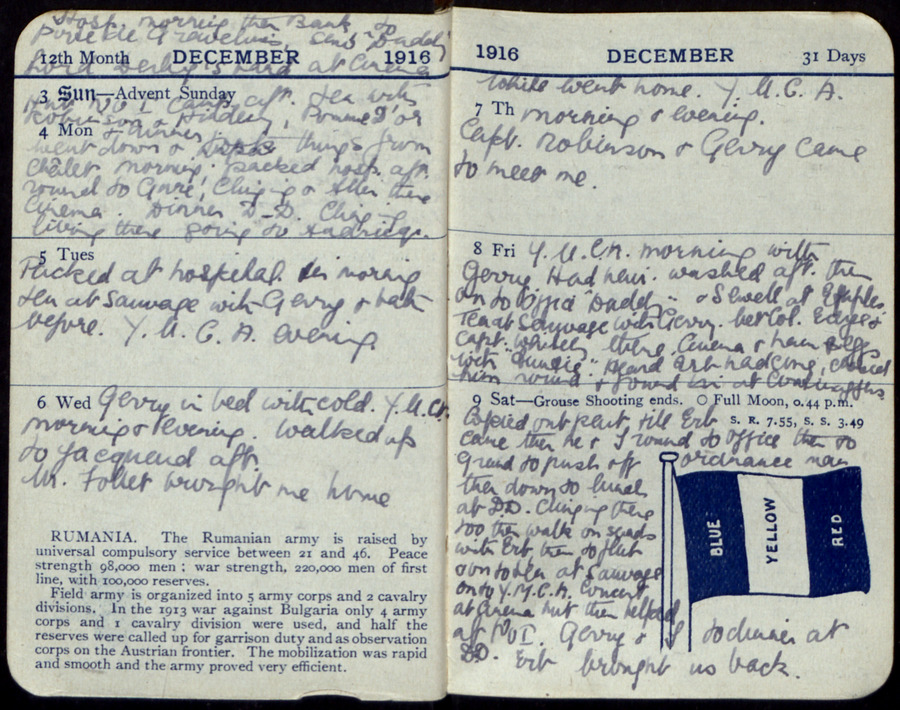 Hosp. morning then Bank to
12th Month DECEMBER 1916
Lord Derby's Band at Cinema
3 Sun—Advent Sunday
Hut No I Camp aft. Tea with
Robinson & Hildery, Pomme D'or
4 Mon & dinner
went down & things from
Chalet morning, packed hosp. aft.
round to Gare, Ching & Allen there
Cinema. Dinner D-D. Ching
living there going to
5 Tues
Packed at hospital in morning
tea at Sauvage with Gerry & bath
before. Y. M. C. A. evening.
6 Wed Gerry in bed with cold. Y.M.C.A.
morning & evening. Walked up
to Jacquend aft.
Mr. Follet brought me home
RUMANIA. The Rumanian army is raised by
universal compulsory service between 21 and 46. Peace
strength 98,000 men; war strength, 220,000 men of first
line, with 100,000 reserves.
Field army is organized into 5 army corps and 2 cavalry
divisions. In the 1913 war against Bulgaria only 4 army
corps and 1 cavalry division were used, and half the
reserves were called up for garrison duty and as observation
corps on the Austrian frontier. The mobilization was rapid
and smooth and the army proved very efficient.
1916 DECEMBER 31 Days
White went home. Y. M. C. A.
7 Th morning & evening.
Capt. Robinson & Gerry came
to meet me.
8 Fri Y. M. C. A. morning with
Gerry. Had hair washed aft. then
on to Office "Daddy" & Sewell at Etaples
Tea at Sauvage with Gerry. Col.
Capt. there. Cinema & ham & eggs
with "Auntie". Heard Erb had gone,
him round & found him at
9 Sat—Grouse Shooting ends. O Full Moon, 0.44 p.m.
S. R. 7.55, S. S. 3.49
Copied out part, till Erb
came then he & I round to office then to
Grand to push off ordnance man
then down to lunch
at DD. Ching there
too then walk on sands
with Erb, then to Hut
& on to tea at Sauvage
on to Y.M.C.A. Concert
at Cinema hut then helped
at No I. Gerry & I to dinner at
DD. Erb brought us back.
BLUE
YELLOW
RED